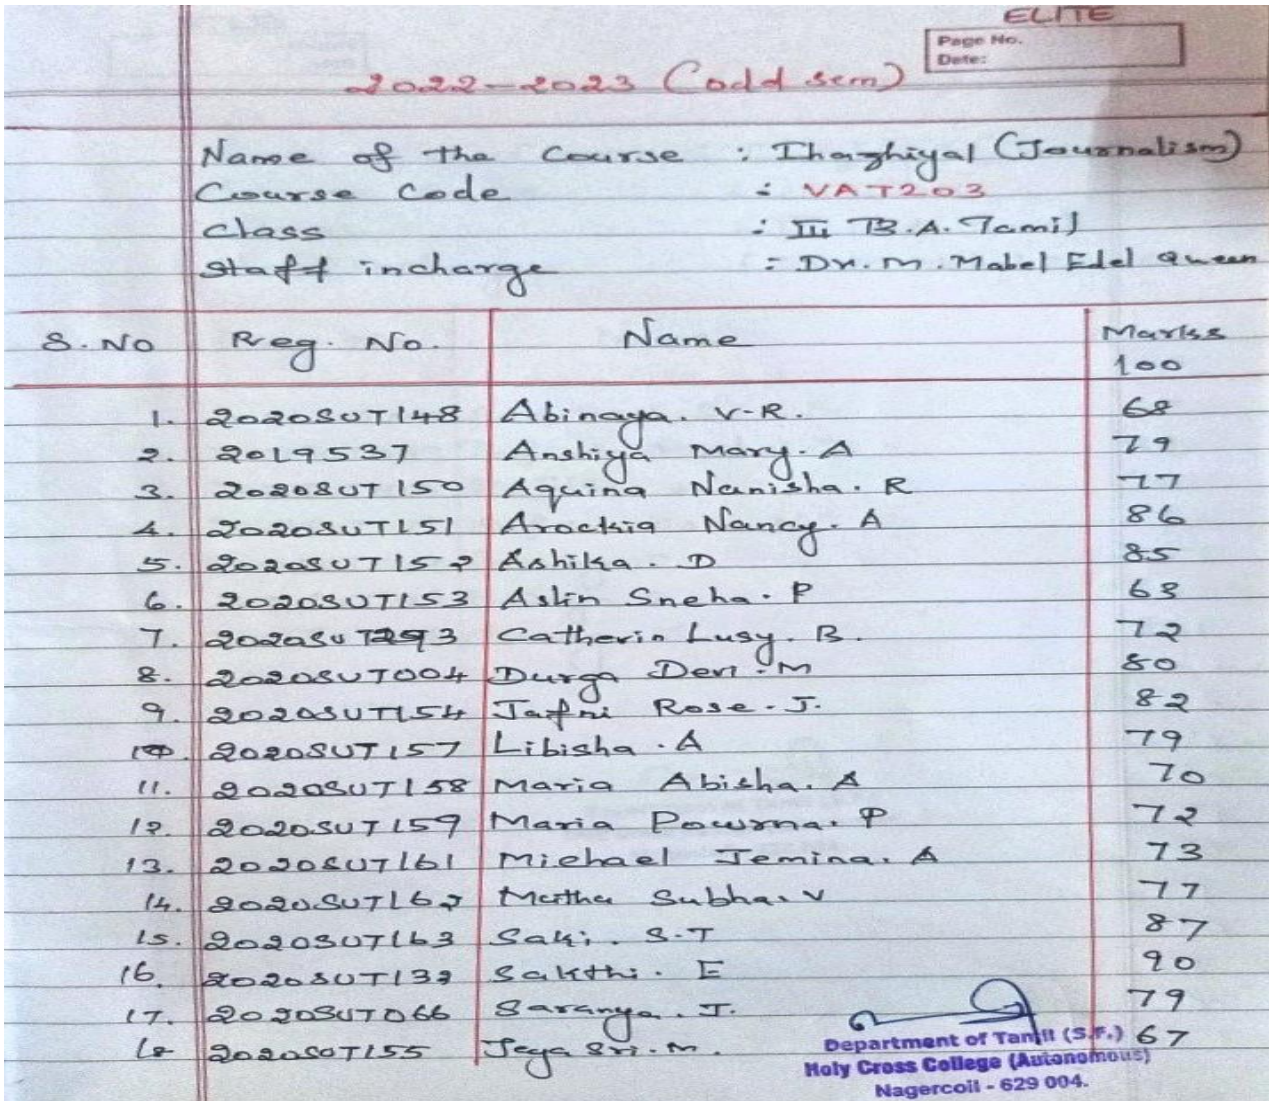 ELITE
Page No.
Date:
2022-2023 (odd sem)
Name of the Course : Ihazhiyal (Journalism)
Course Code : VAT203
Class : III B.A. Tamil
Staff incharge : Dr. M. Mabel Edel Queen
S. No Reg. No. Name Marks
100
1. 2020SUT148 Abinaya. V-R. 68
2. 2019537 Anshiya Mary. A 79
3. 2020SUT150 Aquina Nanisha. R 77
4. 2020SUT151 Arockia Nancy. A 86
5. 2020SUT152 Ashika. D 85
6. 2020SUT153 Aslin Sneha. P 63
7. Catherin Lusy. B. 72
8. 2020SUT004 Durga Devi. M 80
9. 2020SUT154 Jafni Rose. J. 82
10. 2020SUT157 Libisha. A 79
11. 2020SUT158 Maria Abisha. A 70
12. 2020SUT159 Maria Powrna. P 72
13. 2020SUT161 Michael Jemina. A 73
14. 2020SUT162 Subha. V 77
15. 2020SUT163 Saki. S.T 87
16. 2020SUT132 Sakthi. E 90
17. 2020SUT066 Saranya. J. 79
18 2020SUT155 Jeya Sri. M. 67
Department of Tamil (S.F.)
Holy Cross College (Autonomous)
Nagercoil - 629 004.